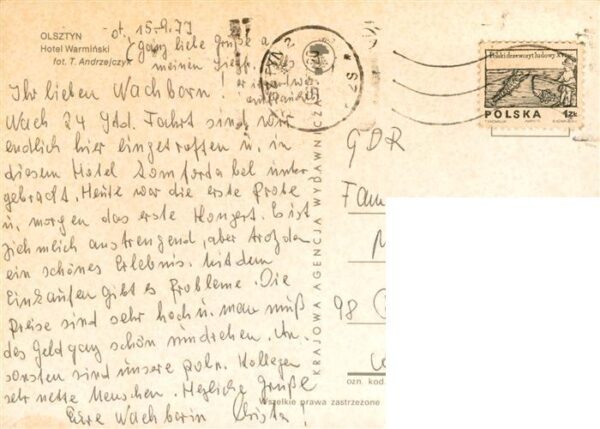 OLSZTYN
Hotel Warmiński
fot. T. Andrzejczyk
d. 15.9.77
ganz liebe Grüße a
meinen
er ist
Ihr lieben Nachbarn!
Nach 24 Std. Fahrt sind wir
endlich hier eingetroffen u. in
diesem Hotel komfortabel unter
gebracht. Heute war die erste Probe
u. morgen das erste Konzert. Es ist
ziehmlich anstrengend, aber trotzdem
ein schönes Erlebnis. Mit dem
Einkaufen gibt es Probleme. Die
Preise sind sehr hoch u. man muß
das Geld ganz schön umdrehen. An-
sonsten sind unsere poln. Kollegen
sehr nette Menschen. Herzliche Grüße
Eure Nachbarin Christa!
KRAJOWA AGENCJA WYDAWNICZA
Polski drzeworyt ludowy XVI
POLSKA 1zł
GDR
Fam
98
ozn. kod.
Wszelkie prawa zastrzeżone